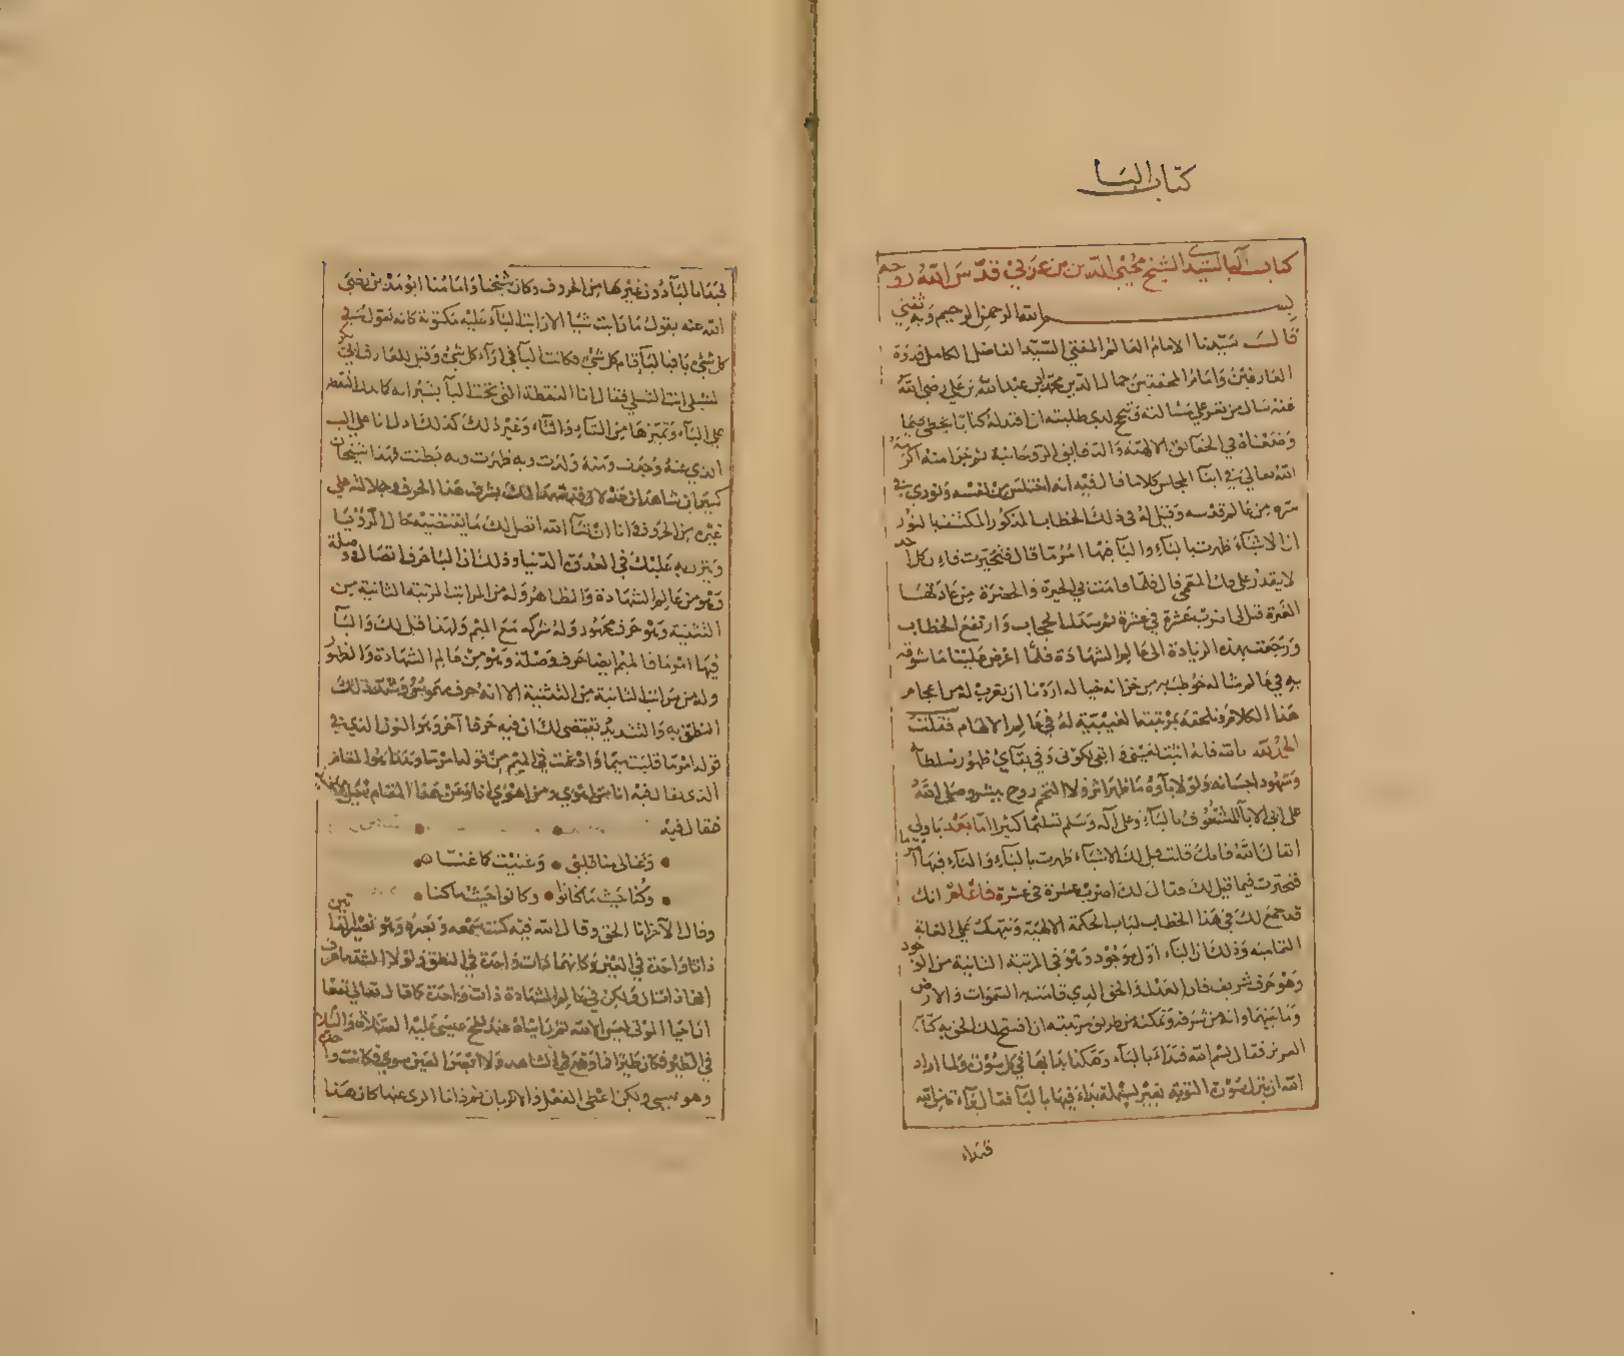 كتاب البا
كتاب البا للسيد الشيخ محيي الدين بن عربي قدس الله روحه
بسم الله الرحمن الرحيم وبه ثقتي
قال سيدنا الامام العالم المفتي السيد الفاضل الكامل قدوة
العارفين وامام المحققين جمال الدين محمد ابن عبد الله بن علي رضي الله
عنه سال من تعين علي مسالته وتنجح لدي طلبته ان اقيد له كتابا يحظى بما
وضعناه في الحقائق الالهية والدقايق الروحانية
الله تعالى في اثنا المجالس كلاما قال فيه انه اختلس من نفسه ونودي في
سره من عالم قدسه وقيل له في ذلك الخطاب المذكور المكتنف بالنور
ان الاشياء ظهرت بالباء والباء فيها امر ما قال فتحيرت فان كل احد
لا يقدر على فك المعمى قال فلما اقامتني الحيرة في الحضرة من عادتها
الغيرة قيل لي اضرب عشرة في عشرة ثم سدل الحجاب وارتفع الخطاب
ورجعت بهذه الزيادة الى عالم الشهادة فلما اعرض علينا ما شوفه
به في عالم مثاله خوطب به من خزانة خياله اردنا ان نعرب له من اعجام
هذا الكلام ونلحقه بمرتبته الغيبية له في عالم الالهام فقلت
الحمد لله بالله فانه اثبت لعيني وابقى لكوني وفي بقاي ظهور سلطانه
وشهود احسانه ولولا باؤه ما ظهر اثر ولا التحم روح ببشر وصلى الله
على ابي الاباء المشغوف بالباء وعلى اله وسلم تسليما كثيرا اما بعد يا ولي
اتقانا الله فانك قلت قيل لك الاشياء ظهرت بالباء والباء فيها امر ما
فتحيرت فيما قيل لك وقال لك اضرب عشرة في عشرة فاعلم انك
قد جمع لك في هذا الخطاب لباب الحكمة الالهية ونبهك على الغاية
وذلك ان الباء اول موجود وهو في المرتبة الثانية من الوجود
وهو حرف شريف فان العدل والحق الذي قامت به السموات والارض
وما بينهما وانه من شرفه وتمكنه من طريق مرتبته ان افتتح الحق به كتابه
العزيز فقال بسم الله فبداء بالباء وهكذا بدا بها في كل سورة ولما اراد
الله ان ينزل سورة التوبة بغير بسملة بداء فيها بالباء فقال براءة من الله
فبداء
لحقنا بالباء دون غيرها من الحروف وكان شيخنا وامامنا ابو مدين رضي
الله عنه يقول ما رايت شيا الا رايت الباء عليه مكتوبة كانه يقول في
كل شيء بي قام كل شيء فكانت الباء في ازاء كل شيء وقيل للعارف ابي بكر
الشبلي انت الشبلي فقال انا النقطة التي تحت الباء يشير انه كما تدل النقطة
على الباء وتميزها من التاء والثاء وغير ذلك كذلك ادل انا على السبب
الذي عنه وجدت ومنه ولدت وبه ظهرت وبه بطنت فهذا شيخان
كبيران شاهدان عدلان قد شهدا لك بشرف هذا الحرف وجلالته على
غيره من الحروف وانا ان شاء الله افصل لك ما يقتضيه
وينزل به عليك في العدوة الدنيا وذلك ان البا حرف اتصال ووصلة
وهو من عالم الشهادة والظاهر وله من المراتب المرتبة الثانية من
التثنية وهو حرف مجهود وله شركه مع الميم ولهذا قيل لك والباء
فيها امر ما فالميم ايضا حرف وصلة وهو من عالم الشهادة والظهور
وله من مراتب الثانية من التثنية الا انه حرف
النطق به والتشديد يقتضي لك ان فيه حرفا آخر وهو النون الذي في
قوله امر ما قلبت ميما وادغمت في الميم من قوله امر ما وهذا هو المقام
الذي يقال فيه انا من اهوى ومن اهوى انا وعن هذا المقام
فقال فيه
وغنى لي منى قلبي • وغنيت كما غنا
وكنا حيث ما كانوا • وكانوا حيث ما كنا
وقال الآخر انا الحق وقال الله فيه كنت سمعه وبصره وهو
ذاتا واحدة في العين وكانهما ذات واحدة في النطق ولولا الشد ما عرف
اتحاد اثنان ولكن في عالم الشهادة ذات واحدة كما قال تعالى
احيا الموتى ليس الا الله عند نفخ عيسى عليه الصلاة والسلام
في الطير فكان طيرا فما وقع في الشاهد ولا ابصر العين سوى فكانت واحدة
وهو عيسى ولكن اعطى الفعل